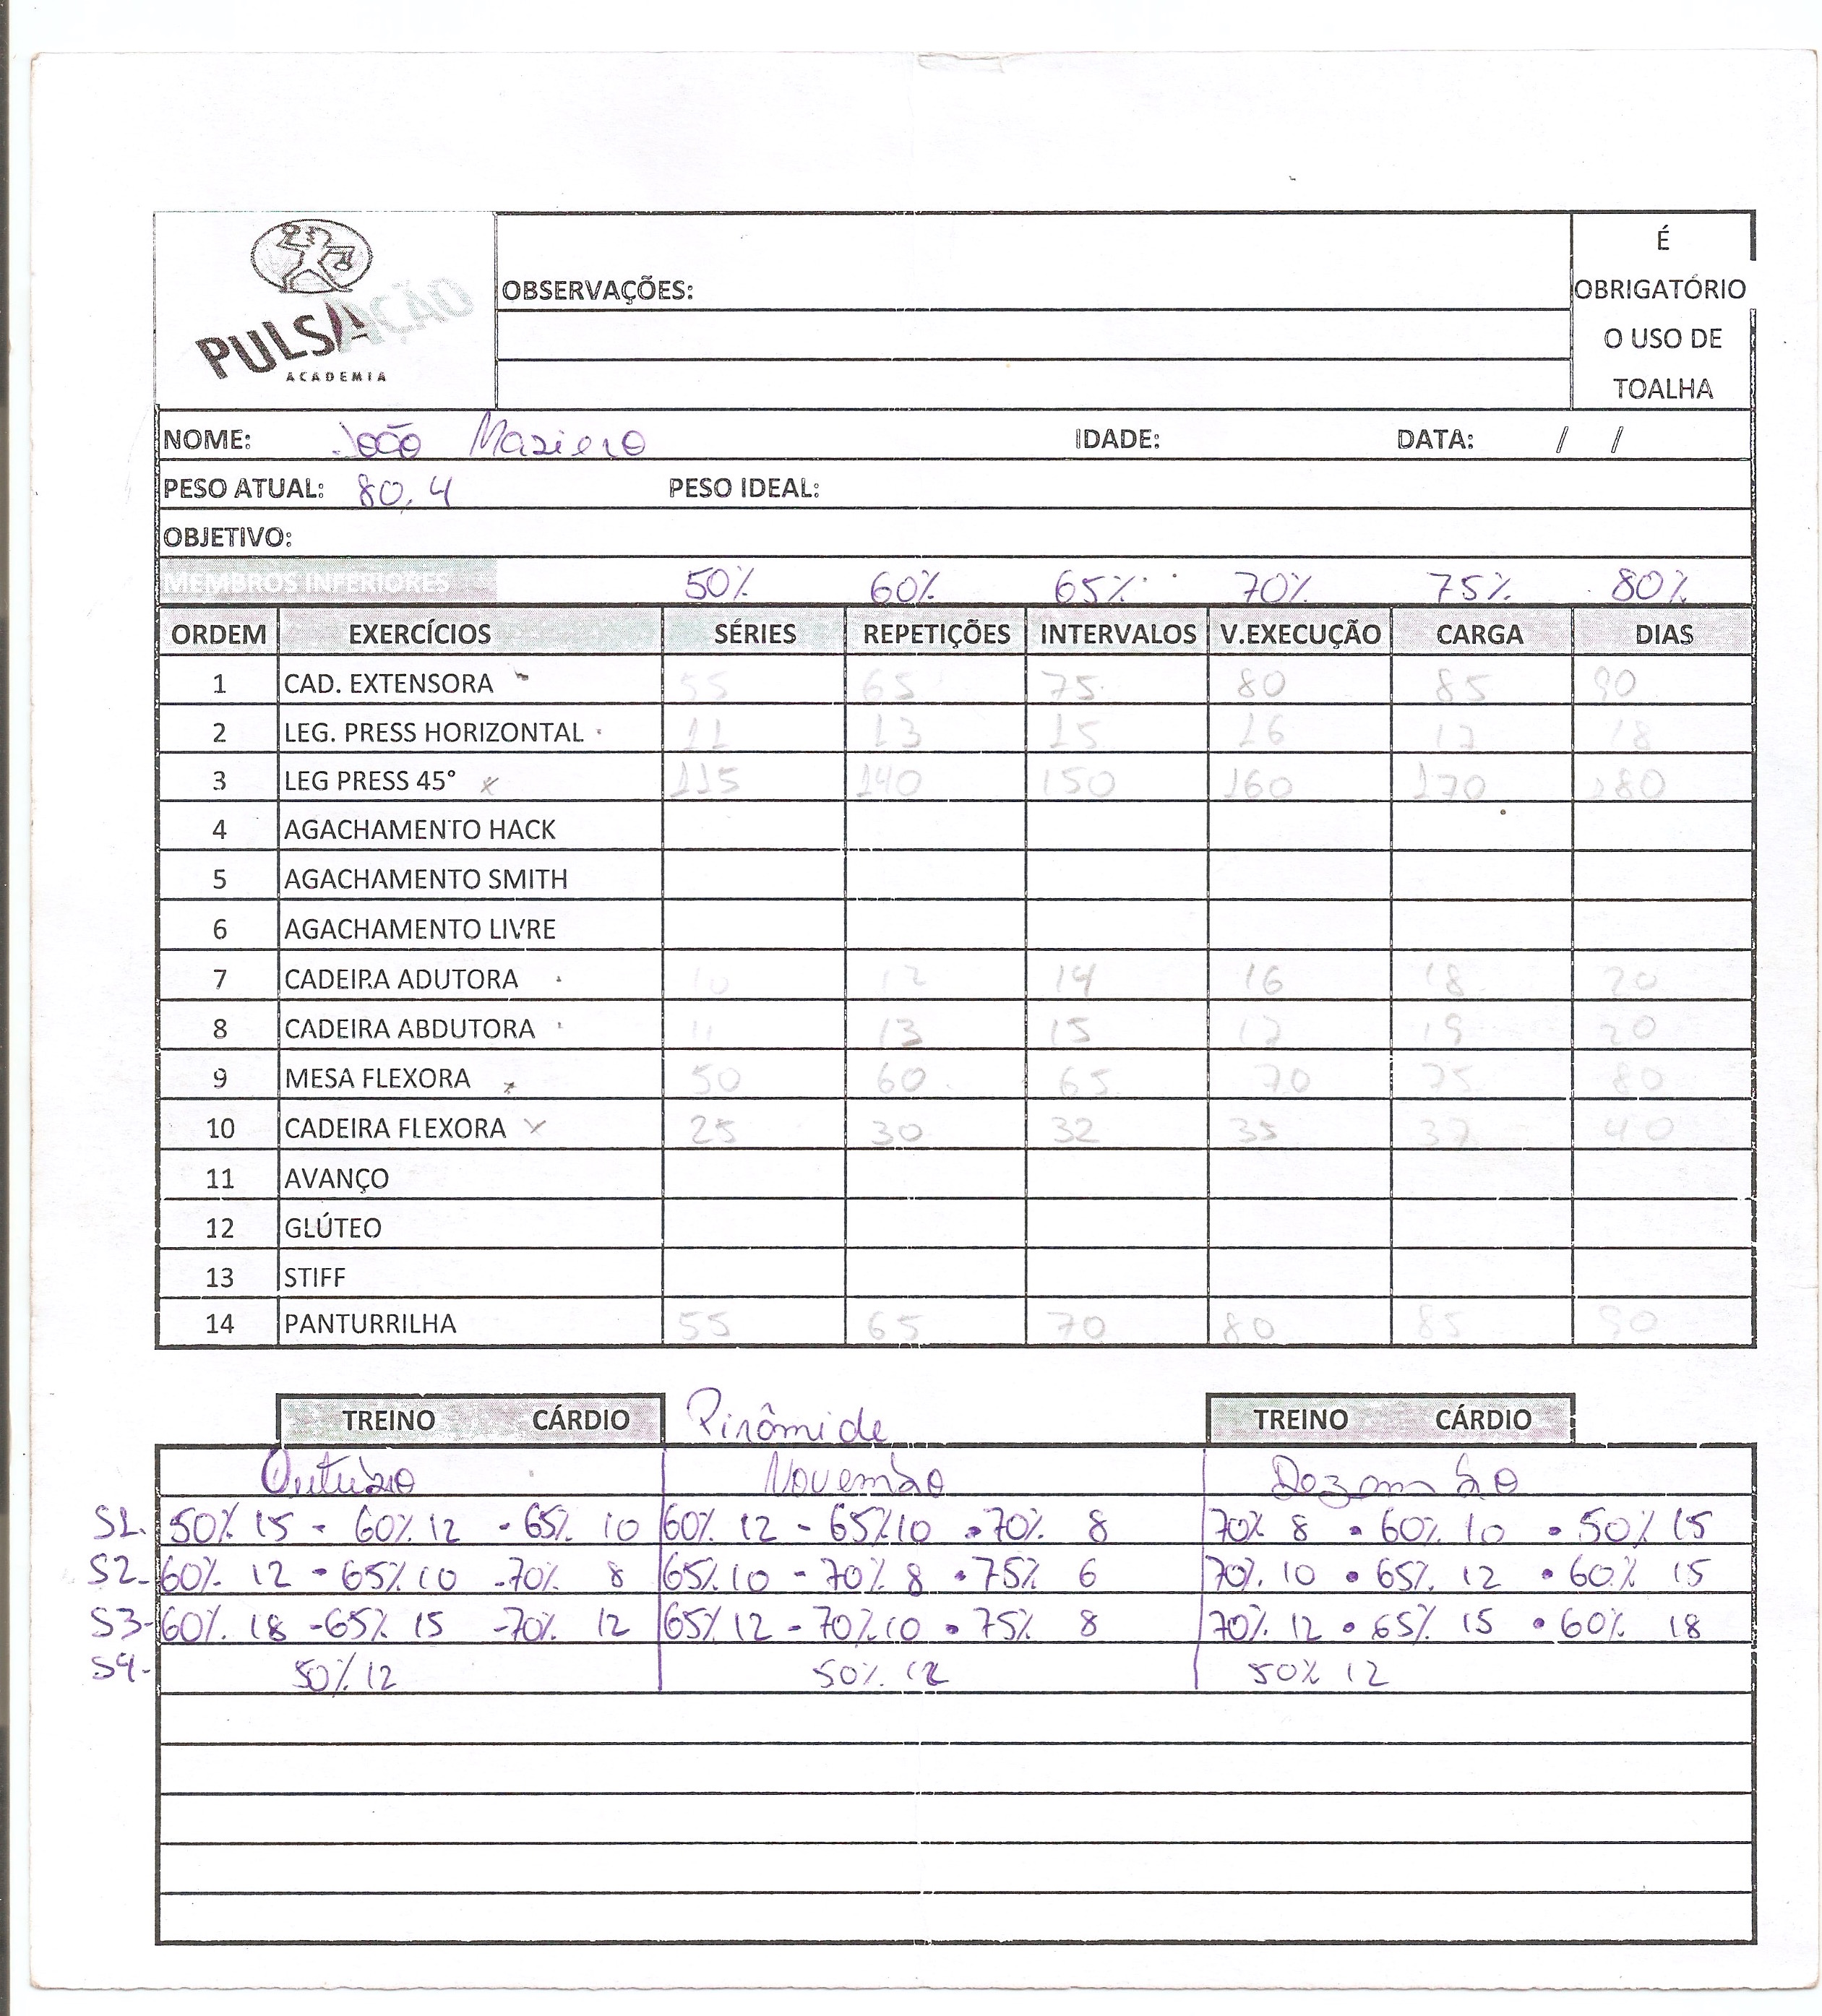 PULSAÇÃO
ACADEMIA
OBSERVAÇÕES:
É
OBRIGATÓRIO
O USO DE
TOALHA
NOME: João Maziero IDADE: DATA: / /
PESO ATUAL: 80,4 PESO IDEAL:
OBJETIVO:
MEMBROS INFERIORES 50% 60% 65% 70% 75% 80%
ORDEM EXERCÍCIOS SÉRIES REPETIÇÕES INTERVALOS V.EXECUÇÃO CARGA DIAS
1 CAD. EXTENSORA 55 65 75 80 85 90
2 LEG. PRESS HORIZONTAL 11 13 15 16 17 18
3 LEG PRESS 45° x 115 140 150 160 170 180
4 AGACHAMENTO HACK
5 AGACHAMENTO SMITH
6 AGACHAMENTO LIVRE
7 CADEIRA ADUTORA 10 12 14 16 18 20
8 CADEIRA ABDUTORA 11 13 15 17 19 20
9 MESA FLEXORA x 50 60 65 70 75 80
10 CADEIRA FLEXORA x 25 30 32 35 37 40
11 AVANÇO
12 GLÚTEO
13 STIFF
14 PANTURRILHA 55 65 70 80 85 90
TREINO CÁRDIO Pirâmide TREINO CÁRDIO
Outubro Novembro Dezembro
S1. 50% 15 - 60% 12 - 65% 10 60% 12 - 65% 10 • 70% 8 70% 8 • 60% 10 • 50% 15
S2- 60% 12 - 65% 10 - 70% 8 65% 10 - 70% 8 • 75% 6 70% 10 • 65% 12 • 60% 15
S3- 60% 18 - 65% 15 - 70% 12 65% 12 - 70% 10 • 75% 8 70% 12 • 65% 15 • 60% 18
S4- 50% 12 50% 12 50% 12